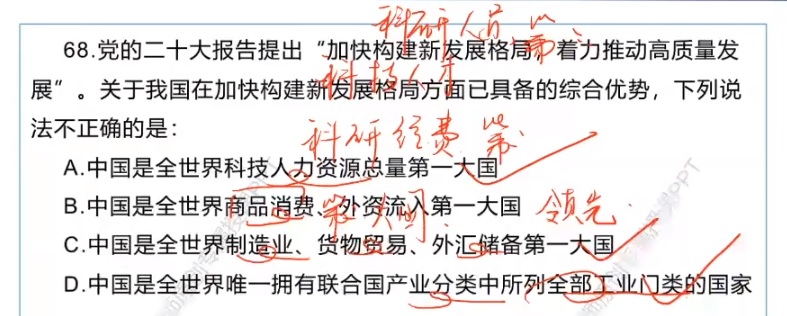 科研人员 第二
68.党的二十大报告提出“加快构建新发展格局，着力推动高质量发
展”。关于我国在加快构建新发展格局方面已具备的综合优势，下列说
科技人才
法不正确的是：
科研经费 第二
A.中国是全世界科技人力资源总量第一大国
B.中国是全世界商品消费、外资流入第一大国
第二大国 领先
C.中国是全世界制造业、货物贸易、外汇储备第一大国
D.中国是全世界唯一拥有联合国产业分类中所列全部工业门类的国家